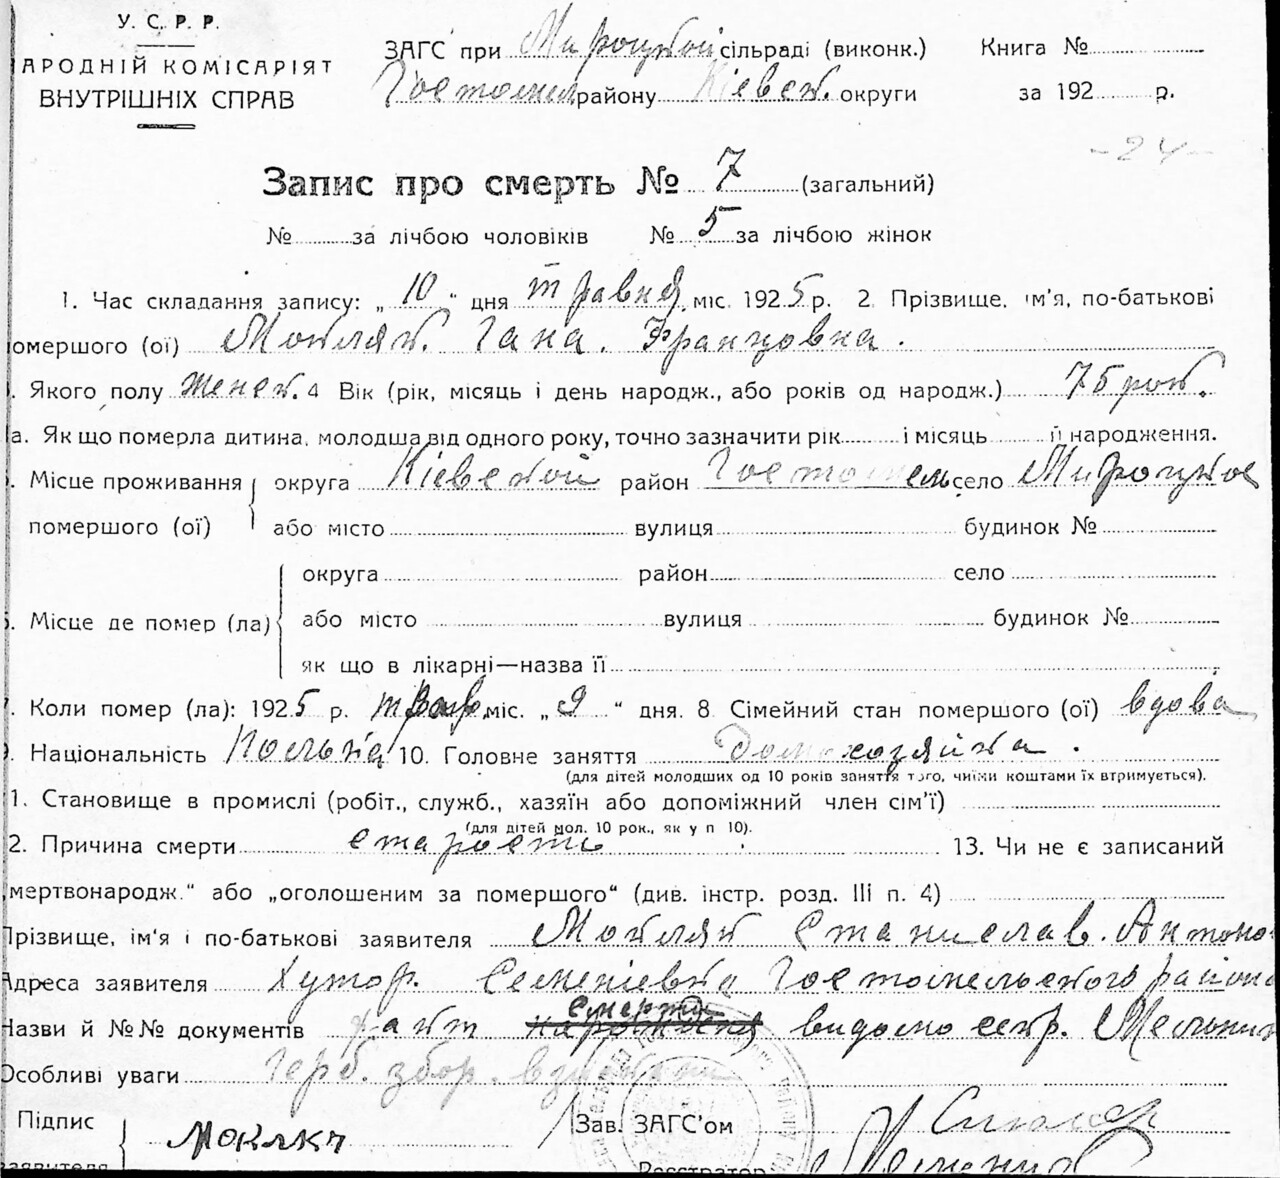 У. С. Р. Р.
АРОДНІЙ КОМІСАРІЯТ
ВНУТРІШНІХ СПРАВ
ЗАГС при Мироцкой сільраді (виконк.)
Гостомел району Кіевск. округи
Книга №
за 192 р.
-24-
Запис про смерть № 7 (загальний)
№ за лічбою чоловіків № 5 за лічбою жінок
1. Час складання запису: „ 10 " дня травня міс. 1925 р. 2. Прізвище, ім'я, по-батькові
омершого (ої) Мокляк. Гана. Францовна.
. Якого полу женск. 4 Вік (рік, місяць і день народж., або років од народж.) 75 рок.
а. Як що померла дитина, молодша від одного року, точно зазначити рік і місяць її народження.
. Місце проживання округа Кіевской район Гостомель село Мироцкое
помершого (ої) або місто вулиця будинок №
округа район село
. Місце де помер (ла) або місто вулиця будинок №
як що в лікарні—назва її
. Коли помер (ла): 1925 р. трав. міс. „ 9 " дня. 8 Сімейний стан помершого (ої) вдова
. Національність Полька 10. Головне заняття Домохозяйка.
(для дітей молодших од 10 років заняття того, чиїми коштами їх втримується).
1. Становище в промислі (робіт., служб., хазяїн або допоміжний член сім'ї)
(для дітей мол. 10 рок., як у п 10).
2. Причина смерти старость 13. Чи не є записаний
„мертвонародж." або „оголошеним за помершого" (див. інстр. розд. III п. 4)
Прізвище, ім'я і по-батькові заявителя Мокляк Станислав. Антоно
Адреса заявителя Хутор. Семенівка Гостомельского района
Назви й №№ документів факт нарождения смерти видомо секр. Мельник
Особливі уваги Герб. збор. взыскан
Підпис Мокляк Зав. ЗАГС'ом
заявителя Реєстратор